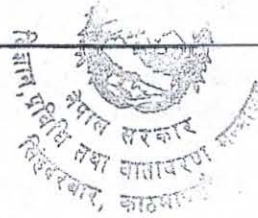 नेपाल सरकार
विज्ञान, प्रविधि तथा वातावरण
सिंहदरबार,